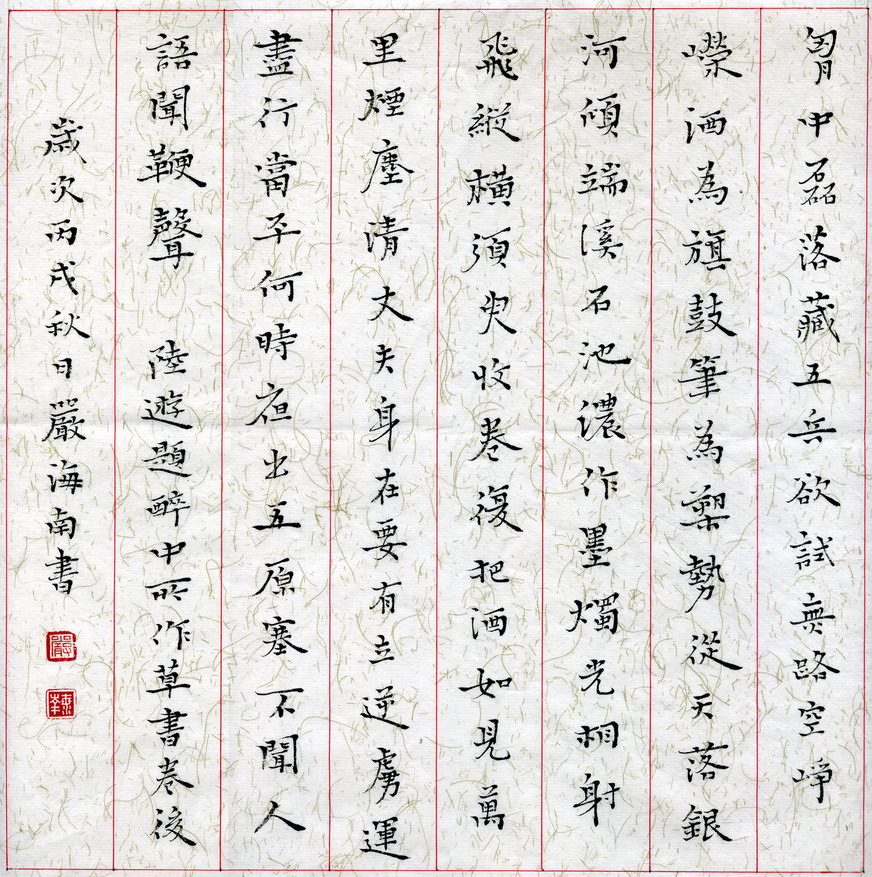 胷中磊落藏五兵欲試無路空崢
嶸酒為旗鼓筆為槊勢從天落銀
河傾端溪石池濃作墨燭光相射
飛縱橫須臾收卷復把酒如見萬
里煙塵清丈夫身在要有立逆虜運
盡行當平何時夜出五原塞不聞人
語聞鞭聲 陸遊題醉中所作草書卷後
歲次丙戌秋日嚴海南書
嚴